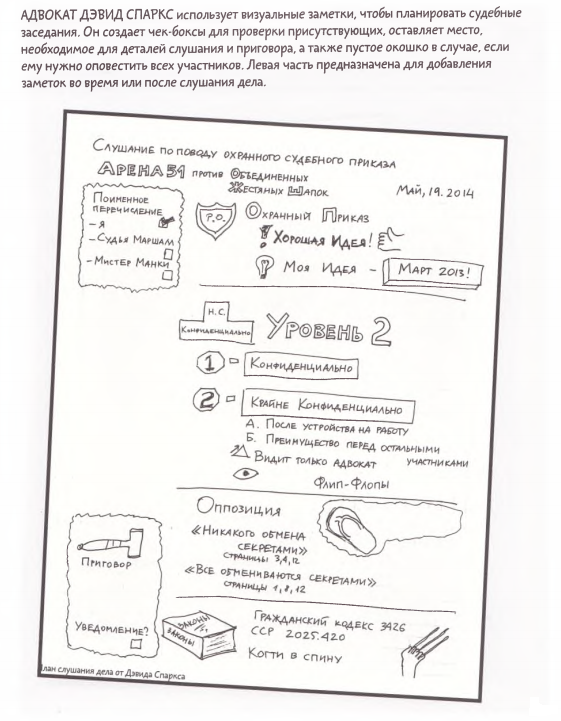 АДВОКАТ ДЭВИД СПАРКС использует визуальные заметки, чтобы планировать судебные
заседания. Он создает чек-боксы для проверки присутствующих, оставляет место,
необходимое для деталей слушания и приговора, а также пустое окошко в случае, если
ему нужно оповестить всех участников. Левая часть предназначена для добавления
заметок во время или после слушания дела.
Слушание по поводу охранного судебного приказа
Арена 51 против Объединенных
Жестяных Шапок
Май, 19. 2014
Поименное
перечисление
- Я
- Судья Маршал
- Мистер Манки
P.O.
Охранный Приказ
! Хорошая Идея!
? Моя Идея – Март 2013!
Н.С.
Конфиденциально
Уровень 2
1 = Конфиденциально
2 = Крайне Конфиденциально
А. После устройства на работу
Б. Преимущество перед остальными
участниками
Видит только адвокат
Флип-Флопы
Оппозиция
«Никакого обмена
секретами»
страницы 3,4,12
«Все обмениваются секретами»
страницы 1,8,12
Приговор
Уведомление?
Законы
Законы
Гражданский кодекс 3426
ССР 2025.420
Когти в спину
лан слушания дела от Дэвида Спаркса